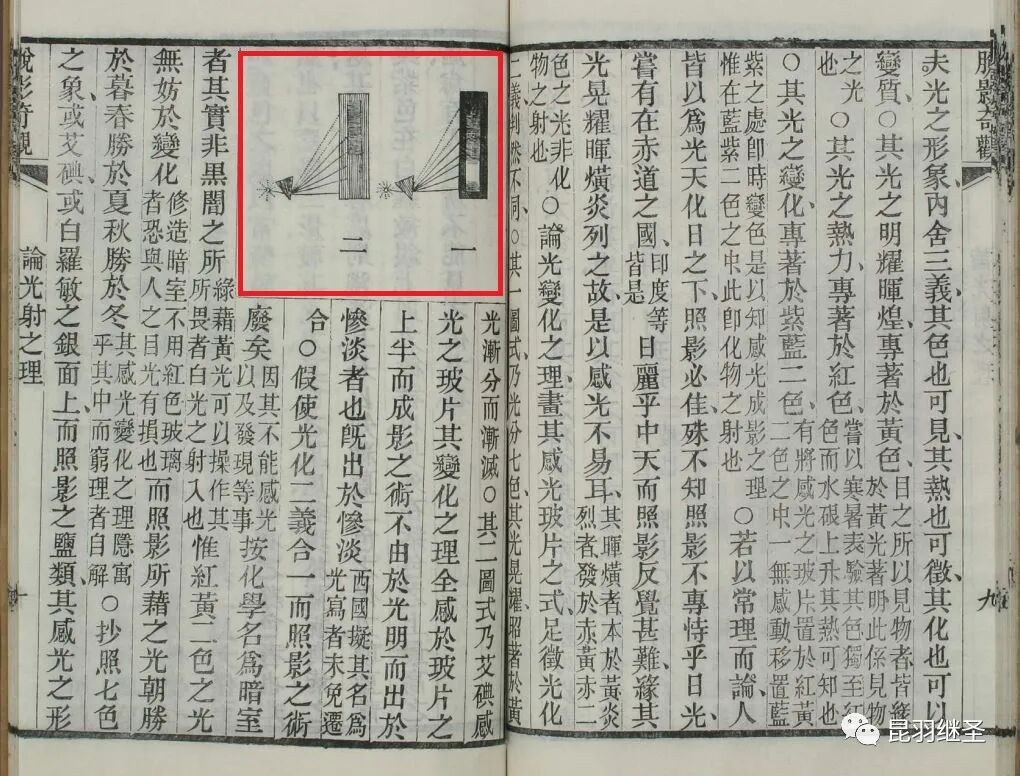 脫影奇觀
九
夫光之形象內含三義其色也可見其熱也可徵其化也可以
變質○其光之明耀暉煌專著於黃色目之所以見物者皆緣
於黃光著明此係見物
之光
也○其光之熱力專著於紅色嘗以寒暑表驗其色獨至紅
色而水銀上升其熱可知也
○其光之變化專著於紫藍二色有將感光之玻片置於紅黃
二色之中一無感動移置藍
紫之處即時變色是以知感光成影之理
惟在藍紫二色之中此即化物之射也○若以常理而論人
皆以爲光天化日之下照影必佳殊不知照影不專恃乎日光
嘗有在赤道之國印度等
皆是日麗乎中天而照影反覺甚難緣其
光晃耀暉熿炎列之故是以感光不易耳其暉熿者本於黃炎
烈者發於赤黃赤二
色之光非化
物之射也○論光變化之理畫其感光玻片之式足徵光化
二義判然不同○其一圖式乃光分七色其光晃耀昭著於黃
一
二
光漸分而漸滅○其二圖式乃艾碘感
光之玻片其變化之理全感於玻片之
上半而成影之術不由於光明而出於
慘淡者也旣出於慘淡西國擬其名爲
光寫者未免遷
合○假使光化二義合一而照影之術
廢矣因其不能感光
以及發現等事按化學名爲暗室
者其實非黑闇之所緣藉黃光可以操作其
所畏者白光之射入也惟紅黃二色之光
無妨於變化修造暗室不用紅色玻璃
者恐與人之目光有損也而照影所藉之光朝勝
於暮春勝於夏秋勝於冬其感光變化之理隱寓
乎其中而窮理者自解○抄照七色
之象或艾碘或白羅敏之銀面上而照影之鹽類其感光之形
脫影奇觀
論光射之理
昆羽继圣